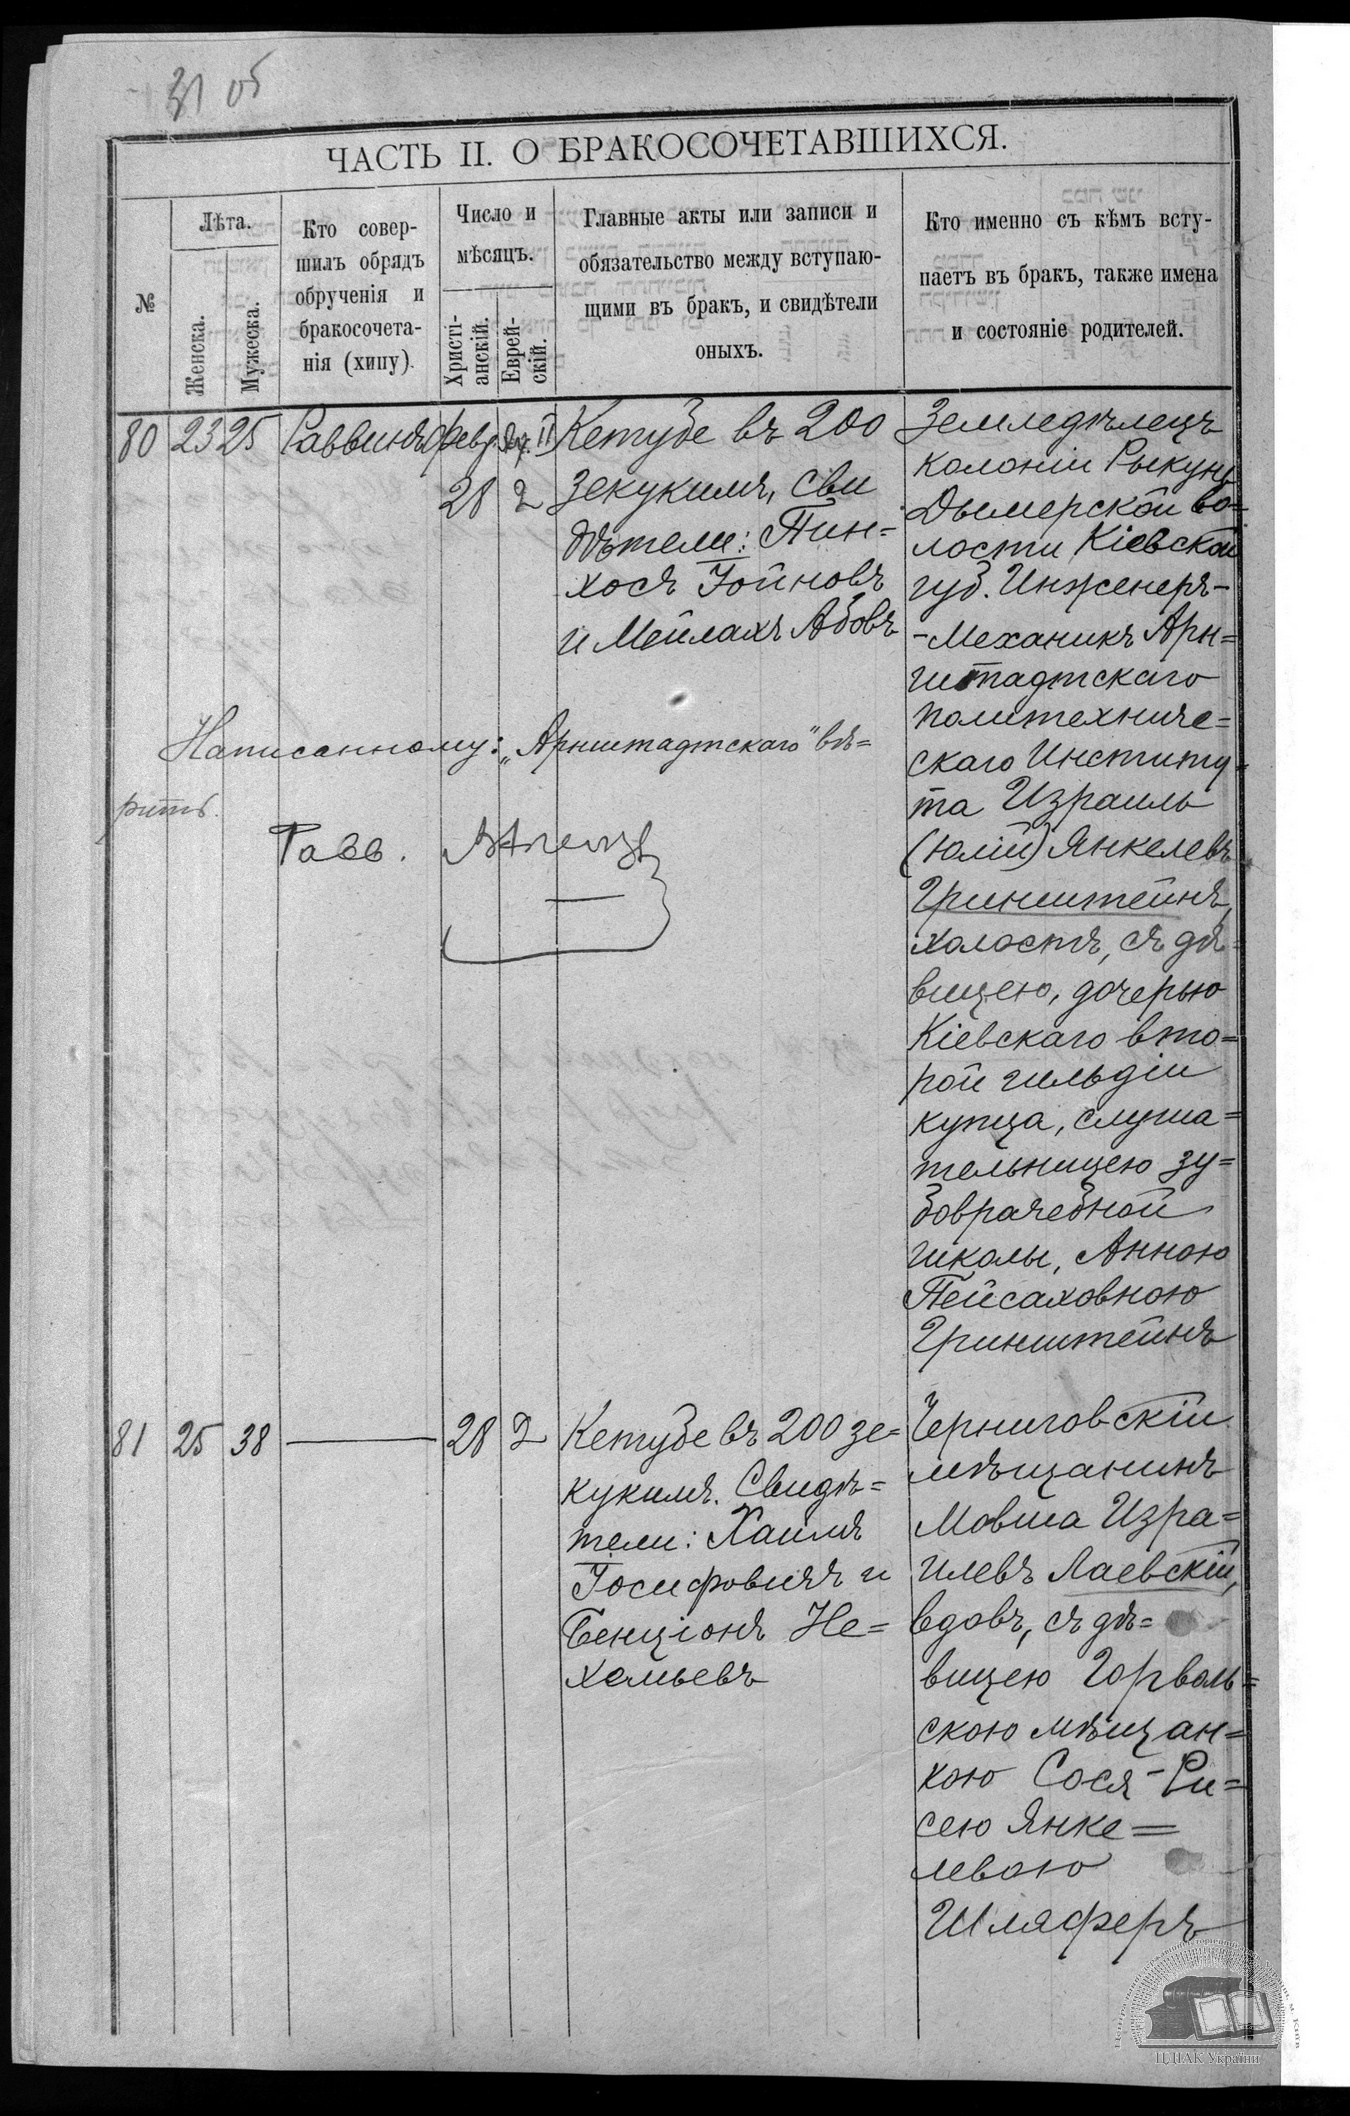 31 об
ЧАСТЬ II. О БРАКОСОЧЕТАВШИХСЯ.
№
Лѣта.
Женска.
Мужеска.
Кто совер-
шилъ обрядъ
обрученія и
бракосочета-
нія (хипу).
Число и
мѣсяцъ.
Христі-
анскій.
Еврей-
скій.
Главные акты или записи и
обязательство между вступаю-
щими въ бракъ, и свидѣтели
оныхъ.
Кто именно съ кѣмъ всту-
паетъ въ бракъ, также имена
и состояніе родителей.
80 23 25 Раввинъ Февр. Ад. II
28 2
Кетубе въ 200
зекукимъ, сви
дѣтели: Пин=
хосъ Іойновъ
и Мейлахъ Абовъ
Земледѣлецъ
колоніи Рыкунъ
Дымерской во=
лости Кіевской
губ. Инженеръ-
-Механикъ Арн=
штадтскаго
политехниче=
скаго Институ=
та Израиль
(Юлій) Янкелевъ
Гринштейнъ,
холостъ, съ дѣ=
вицею, дочерью
Кіевскаго вто=
рой гильдіи
купца, слуша=
тельницею зу=
боврачебной
школы, Анною
Пейсаховною
Гринштейнъ
Написанному: „Арнштадтскаго" вѣ=
рить.
Равв.
81 25 38 — 28 2
Кетубе въ 200 зе=
кукимъ. Свидѣ=
тели: Хаимъ
Іосифовичъ и
Бенціонъ Не=
хемьевъ
Черниговскій
мѣщанинъ
Мовша Изра=
илевъ Лаевскій,
вдовъ, съ дѣ=
вицею Горволь=
скою мѣщан=
кою Сося-Ри=
сею Янке=
левою
Шляферъ
ЦДІАК України